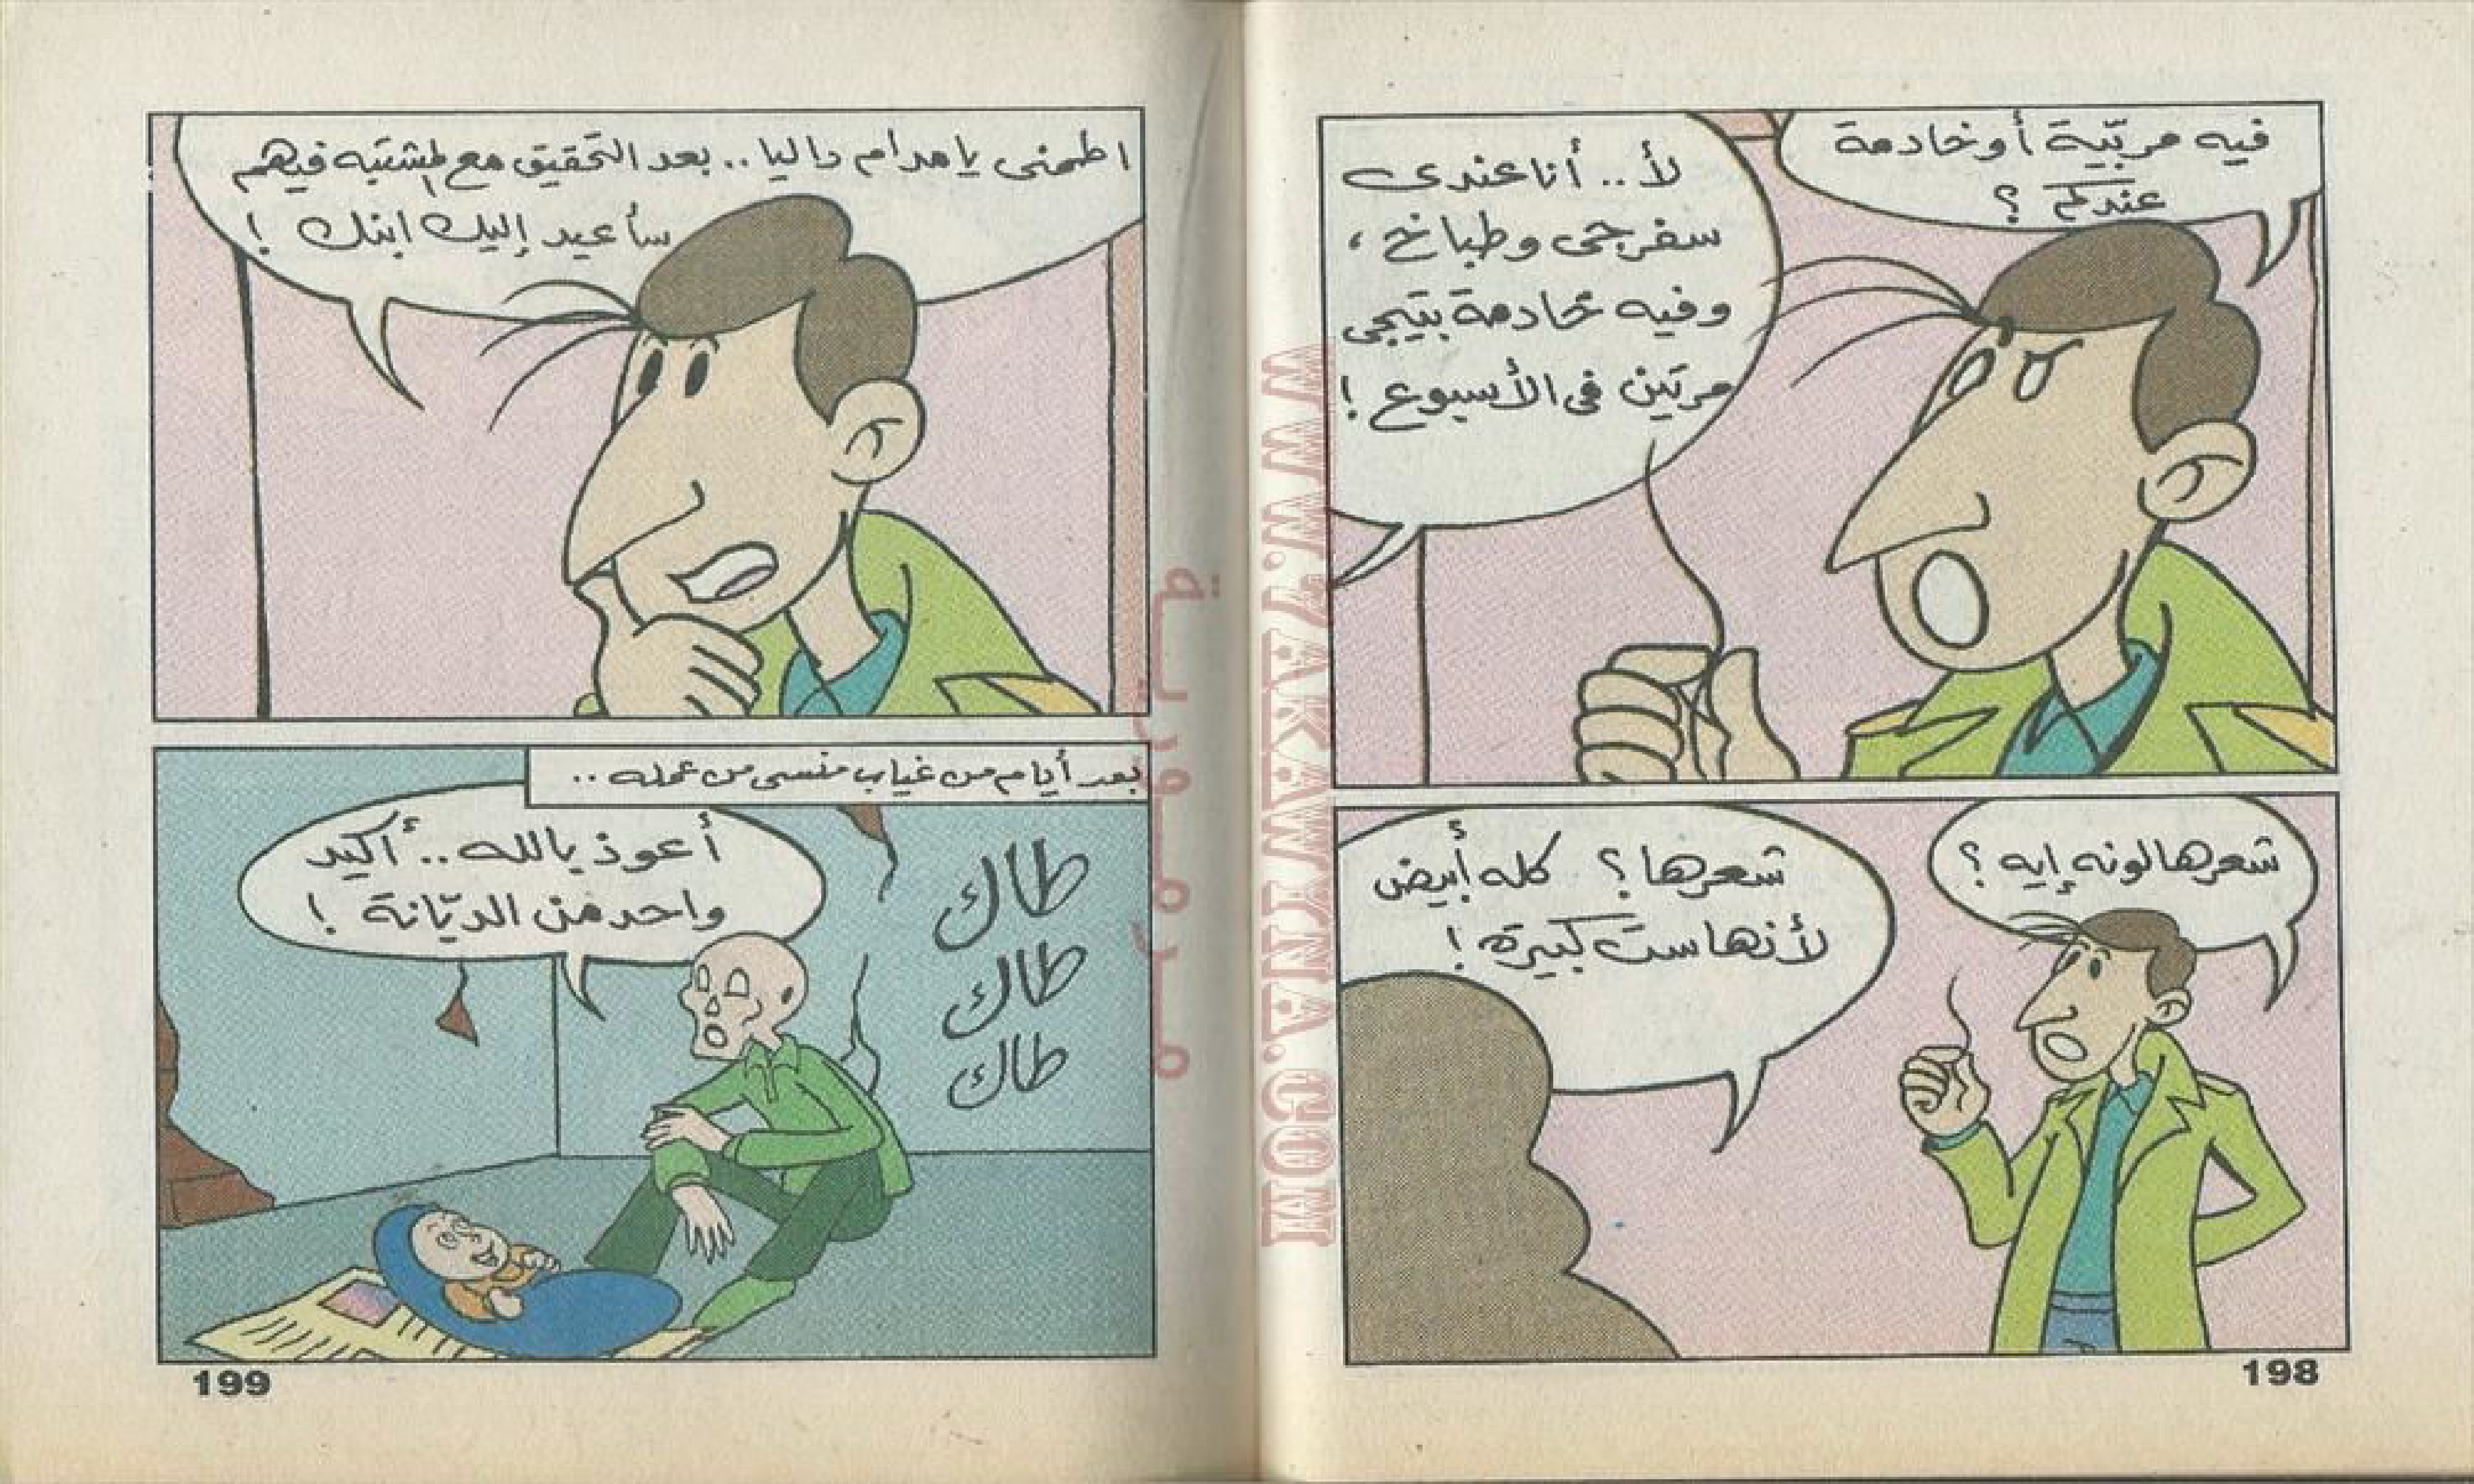 فيه مربّية أو خادمة
عندكم ؟
لأ .. أنا عندى
سفرجى وطباخ ،
وفيه خادمة بتيجى
مرتين فى الأسبوع !
شعرها لونه إيه ؟
شعرها ؟ كله أبيض
لأنها ست كبيرة !
198
اطمنى يا مدام داليا .. بعد التحقيق مع المشتبه فيهم
سأعيد إليك ابنك !
بعد أيام من غياب منسى من عمله ..
أعوذ بالله .. أكيد
واحد من الديّانة !
طاك
طاك
طاك
199
WWW.ARAKAWNNA.COM